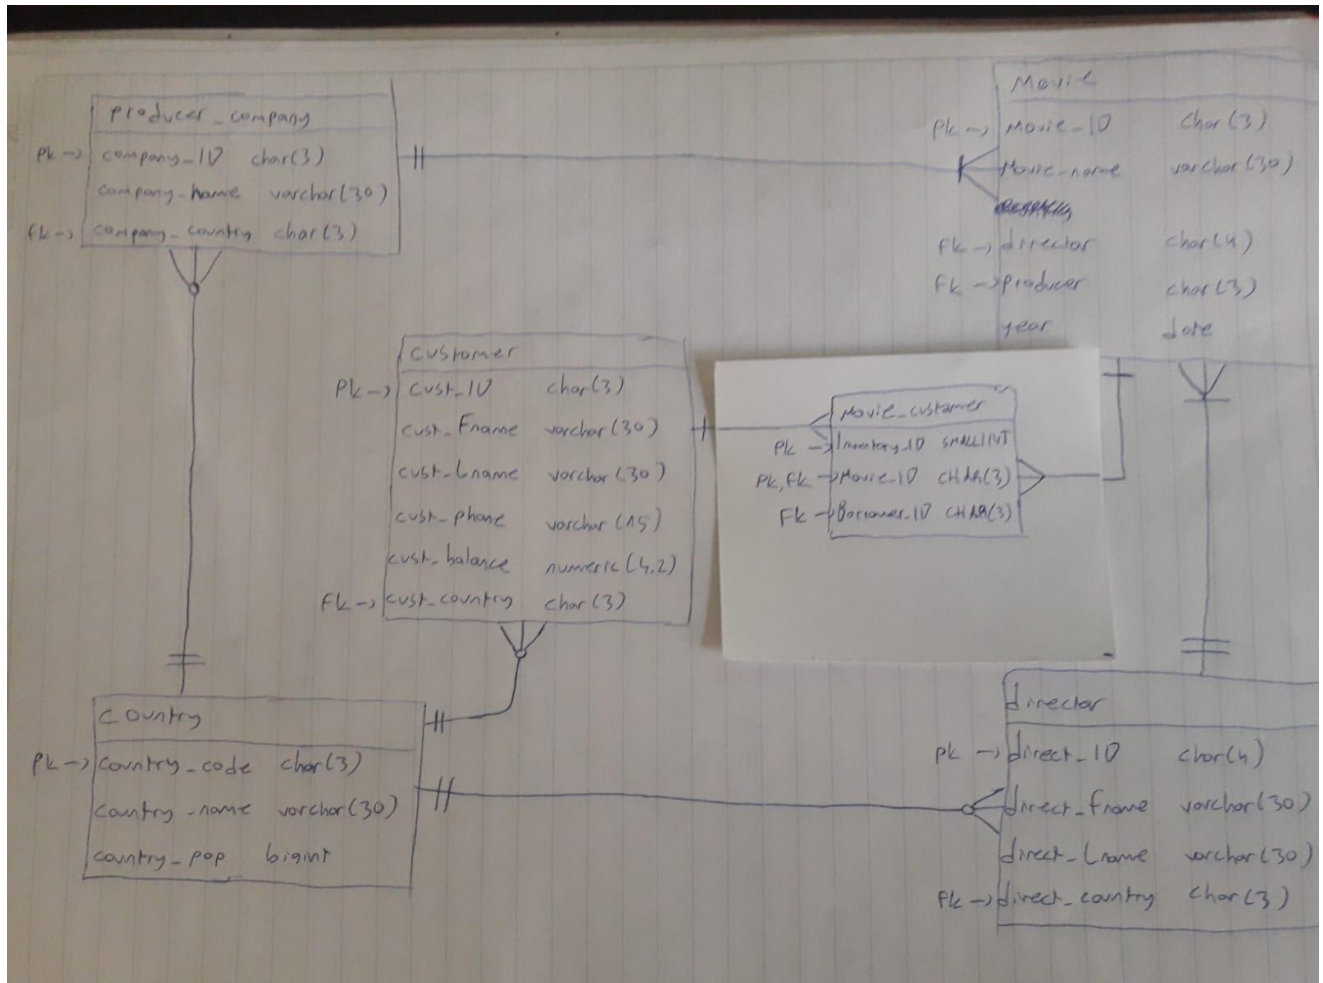 Producer_company
Pk -> company_ID char(3)
company_name varchar(30)
Fk -> company_country char(3)
Movie
Pk -> Movie_ID char(3)
Movie_name varchar(30)
Fk -> director char(4)
Fk -> producer char(3)
year date
customer
Pk -> cust_ID char(3)
cust_Fname varchar(30)
cust_Lname varchar(30)
cust_phone varchar(15)
cust_balance numeric(4,2)
Fk -> cust_country char(3)
Movie_customer
Pk -> Inventory_ID SMALLINT
Pk,Fk -> Movie_ID CHAR(3)
Fk -> Borrower_ID CHAR(3)
Country
Pk -> country_code char(3)
country_name varchar(30)
country_pop bigint
director
Pk -> direct_ID char(4)
direct_fname varchar(30)
direct_Lname varchar(30)
Fk -> direct_country char(3)